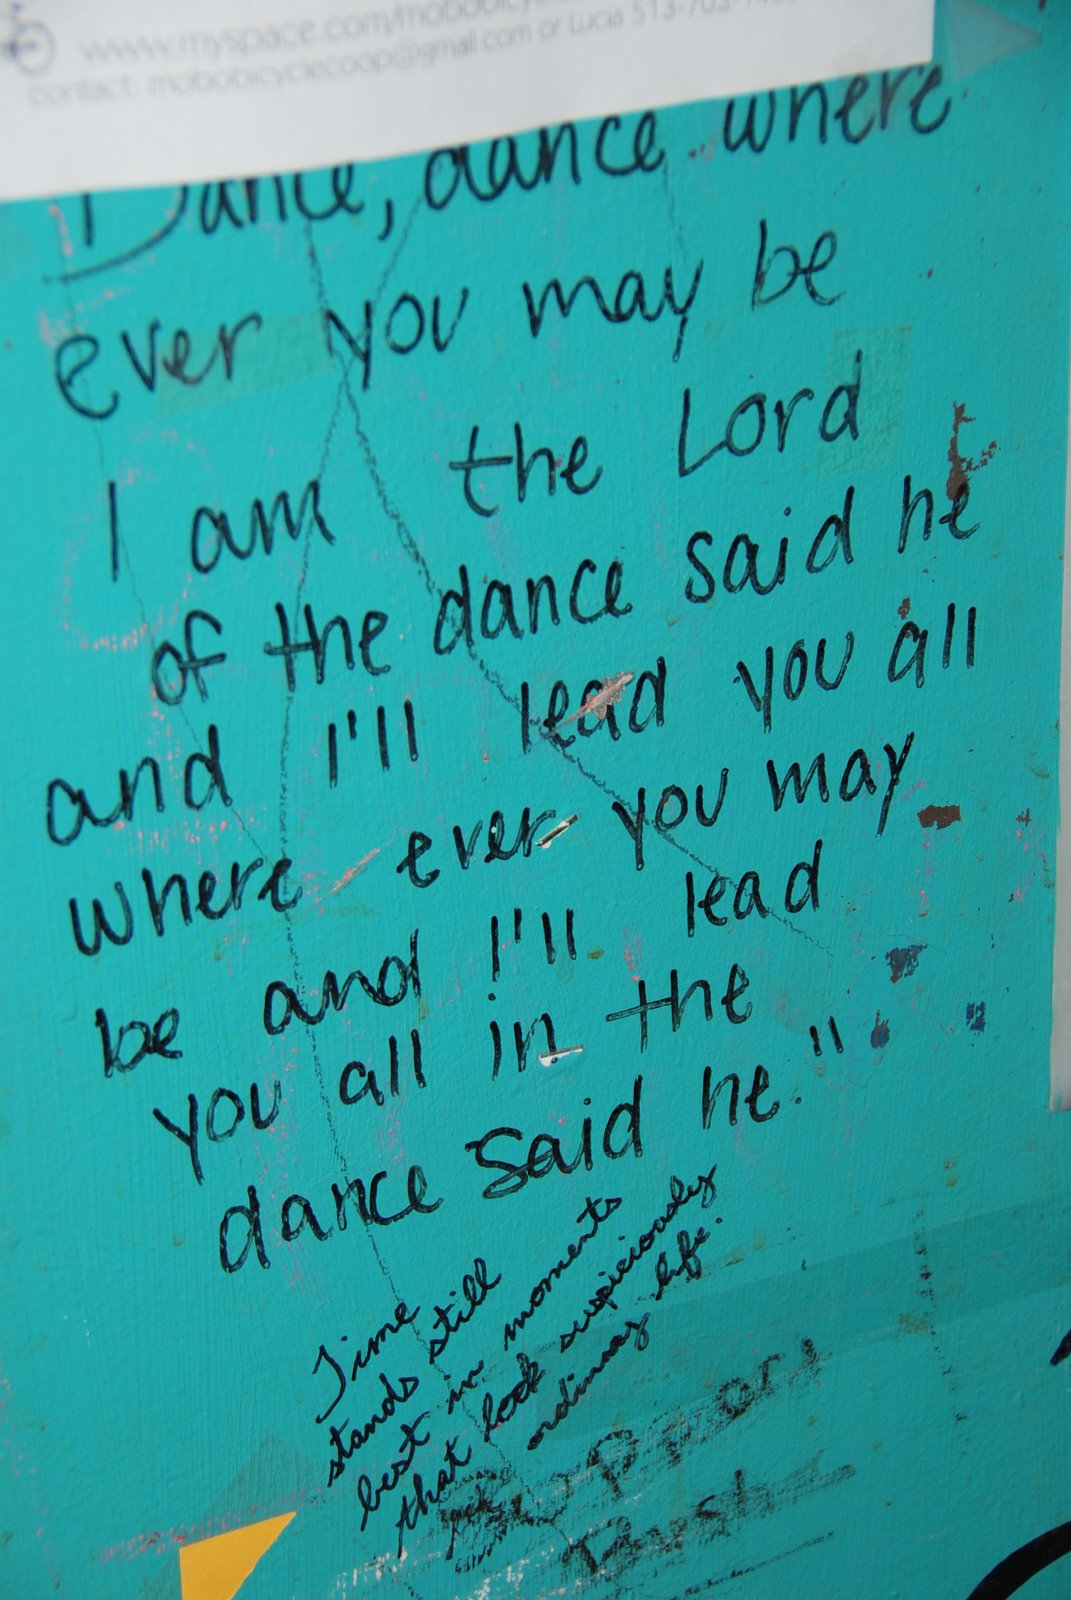 www.myspace.com/mobobicyclecoop
contact: mobobicyclecoop@gmail.com or Lucia 513-703-
Dance, dance where
ever you may be
I am the Lord
of the dance said he
and I'll lead you all
where ever you may
be and I'll lead
you all in the
dance said he."
Time
stands still
best in moments
that look suspiciously
like ordinary life.